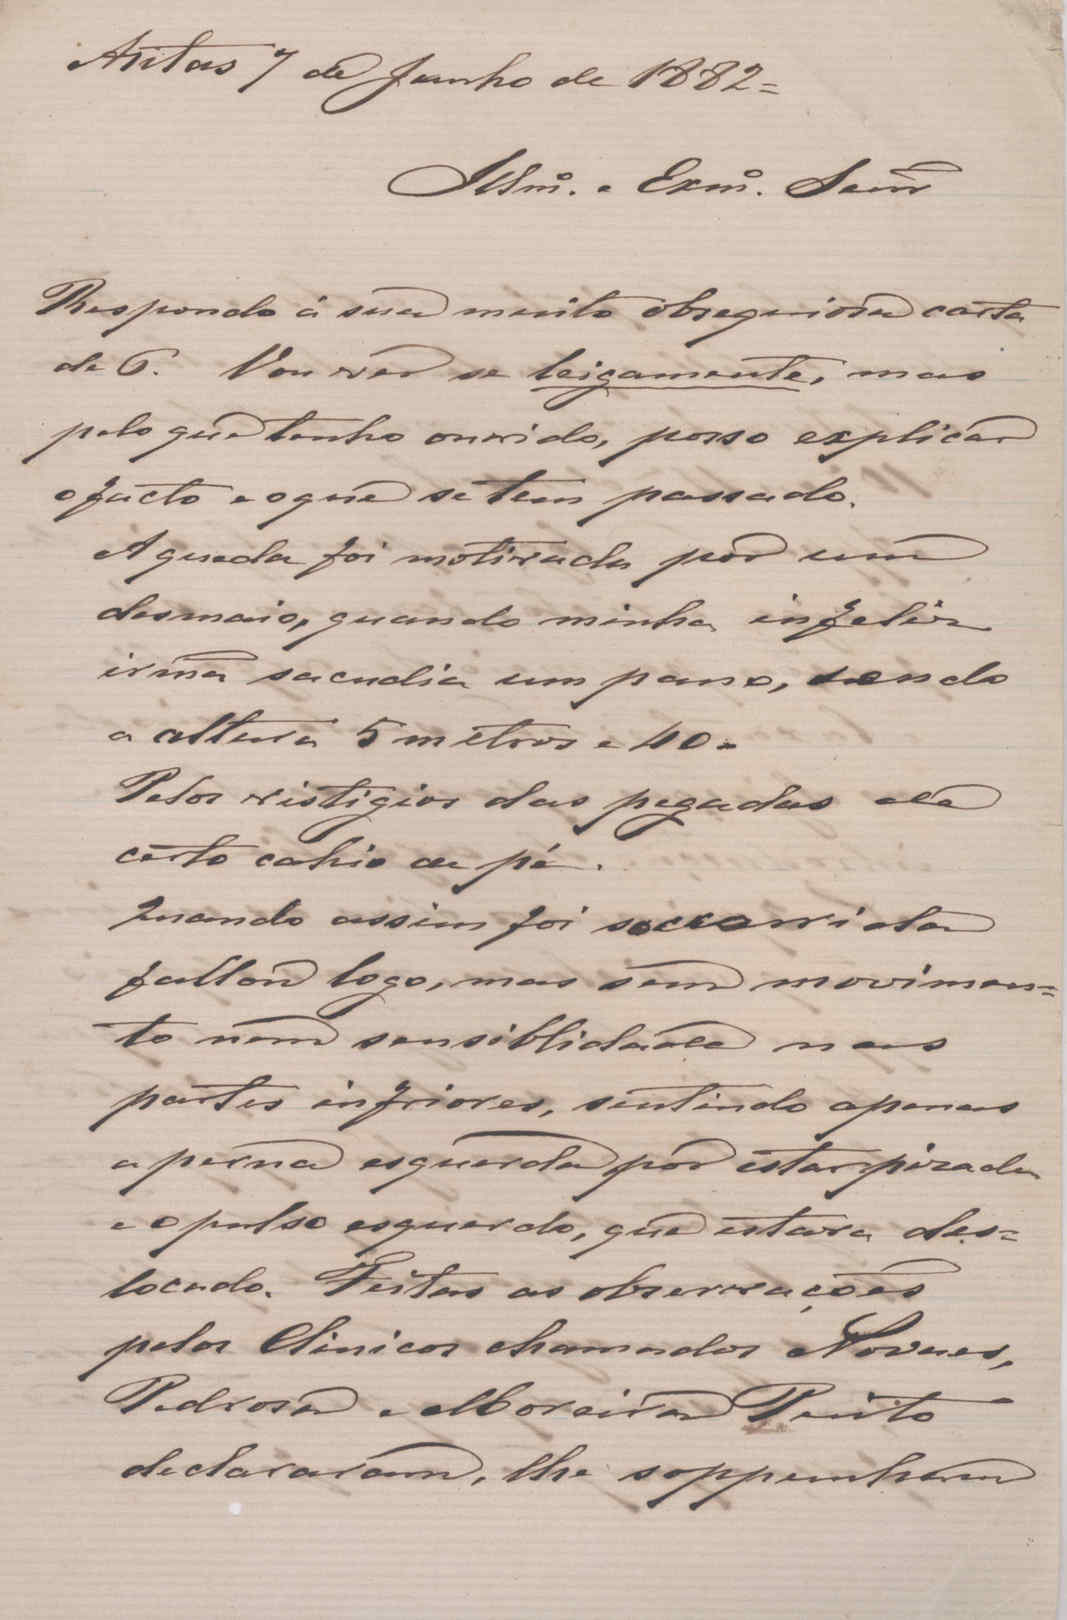 Antas 7 de Junho de 1882=
Illmº. e Exmº. Senr
Respondo á sua muito obsequiosa carta
de 6. Vou ver se leigamente, mas
pelo que tenho ouvido, posso explicar
o facto e o que se tem passado.
A queda foi motivada por um
desmaio, quando minha infeliz
irmã sacudia um pano, sendo
a altura 5 metros e 40.
Pelos vistigios das pegadas ela
certo cahio de pé.
Quando assim foi soccorrida
fallou logo, mas sem movimen=
to nem sensiblidade nas
partes infriores, sentindo apenas
a perna esquerda por estar pizada
e o pulso esquerdo, que estava des=
locado. Feitas as observações
pelos Clinicos chamados Novaes,
Pedrosa e Moreira Pinto
declararam, lhe soppunham